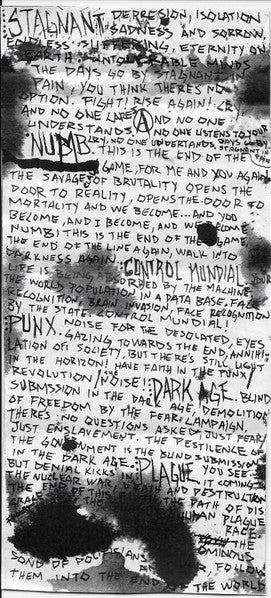 STAGNANT. DEPRESION, ISOLATION
SADNESS AND SORROW.
ENDLESS SUFFERING, ETERNITY ON
EARTH. INTOLERABLE MINDS
THE DAYS GO BY STAGNANT IN
PAIN, YOU THINK THERE'S NO
OPTION. FIGHT! RISE AGAIN! CRY
AND NO ONE CARES AND NO ONE
UNDERSTANDS, AND NO ONE LISTENS TO YOUR
CRY, NO ONE UNDERTANDS, DAYS GO BY
STAGNANT IN PAIN
NUMB. THIS IS THE END OF THE
GAME, FOR ME AND YOU AGAIN,
THE SAVAGES OF BRUTALITY OPENS THE
DOOR TO REALITY, OPENS THE DOOR TO
MORTALITY AND WE BECOME... AND YOU
BECOME, AND I BECOME, AND WE BECOME
NUMB! THIS IS THE END OF THE GAME,
THE END OF THE LINE AGAIN, WALK INTO
DARKNESS AGAIN.
CONTROL MUNDIAL YOUR
LIFE IS BEING ABSORBED BY THE MACHINE
THE WORLD POPULATION IN A DATA BASE, FACE
RECOGNITION, BRAIN INVASION, FACE RECOGNITION
BY THE STATE. CONTROL MUNDIAL!
PUNX. NOISE FOR THE DESOLATED, EYES
GAZING TOWARDS THE END, ANNIHI-
LATION OF SOCIETY, BUT THERE'S STILL LIGHT
IN THE HORIZON! HAVE FAITH IN THE PUNX/
REVOLUTION/NOISE!
DARK AGE. BLIND
SUBMSSION IN THE DARK AGE, DEMOLITION
OF FREEDOM BY THE FEAR CAMPAIGN,
THERE'S NO QUESTIONS ASKED, JUST FEAR/
JUST ENSLAVEMENT. THE PESTILENCE OF
THE GOVERNMENT IS THE BLIND SUBMISSION
IN THE DARK AGE.
PLAGUE. YOU SEE
BUT DENIAL KICKS IN IT COMING
THE NUCLEAR WAR, DEATH AND DESTRUCTION
THE END OF THIS THE PATH OF DIS
HUMAN PLAGUE
RACE
THE
OMINOUS
SOND OF FOLLOW
THEM INTO THE END OF THE WORLD